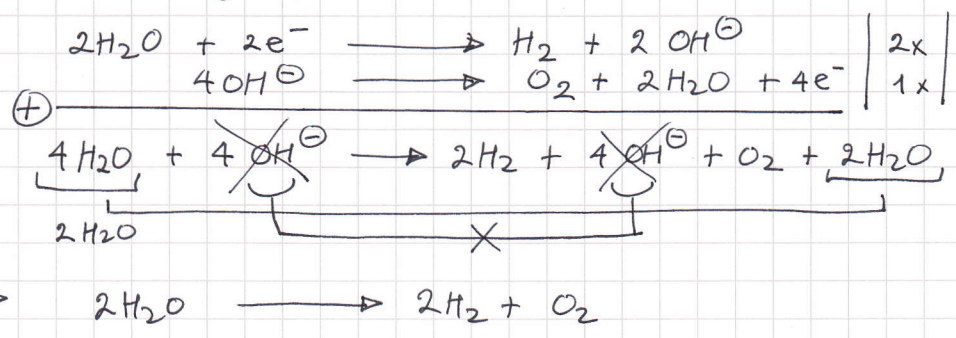 2H₂O + 2e⁻ → H₂ + 2 OH⊖ | 2x |
4OH⊖ → O₂ + 2H₂O + 4e⁻ | 1x |
⊕
4H₂O + 4 OH⊖ → 2H₂ + 4 OH⊖ + O₂ + 2H₂O
2H₂O
2H₂O → 2H₂ + O₂